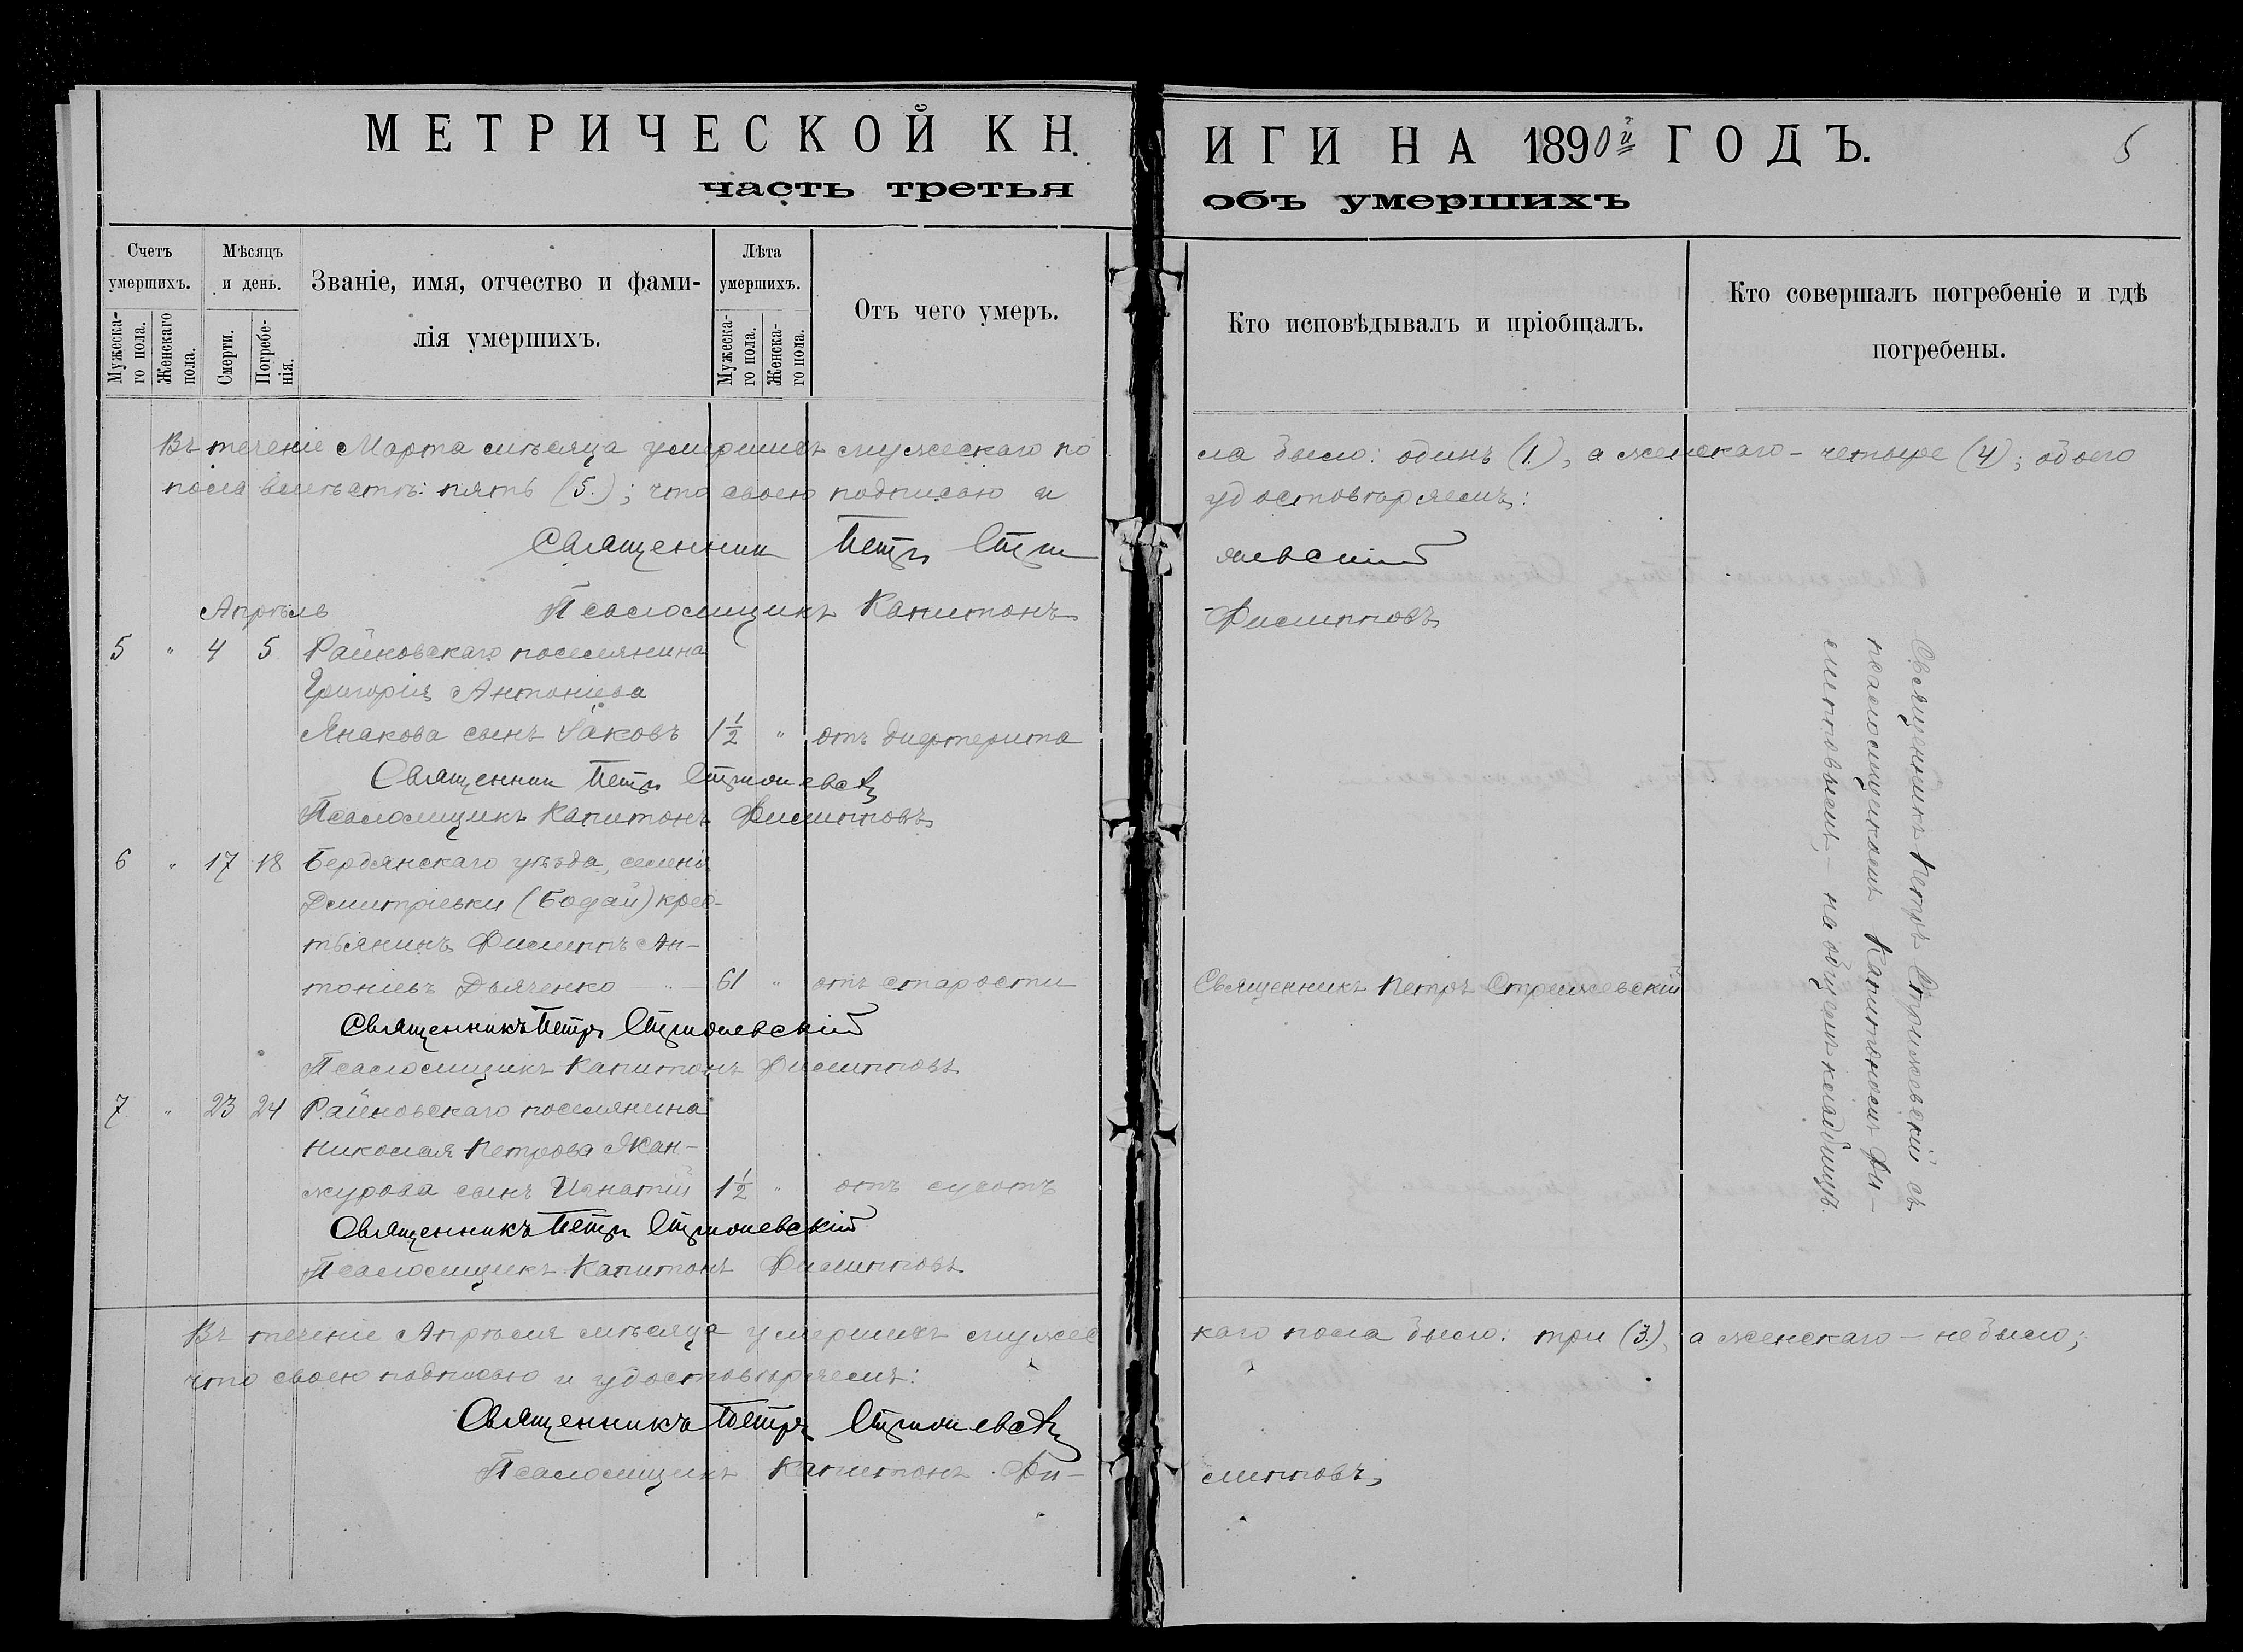 МЕТРИЧЕСКОЙ КНИГИ НА 1890й ГОДЪ.
5
ЧАСТЬ ТРЕТЬЯ ОБЪ УМЕРШИХЪ
Счетъ умершихъ.
Мужеска-го пола.
Женскаго пола.
Мѣсяцъ и день.
Смерти.
Погребе-нія.
Званіе, имя, отчество и фами-
лія умершихъ.
Лѣта умершихъ.
Мужеска-го пола.
Женска-го пола.
Отъ чего умеръ.
Кто исповѣдывалъ и пріобщалъ.
Кто совершалъ погребеніе и гдѣ
погребены.
Въ теченіе Марта мѣсяца умершихъ мужескаго пола было: одинъ (1.), а женскаго – четыре (4); обоего
пола вмѣстѣ: пять (5.); что своею подписью и удостовѣряемъ:
Священник Петръ Стрижевскій
Апрѣль Псаломщикъ Капитонъ Филипповъ
5 " 4 5 Райновскаго поселянина
Григорія Антоніева
Янакова сынъ Іаковъ 1½ " отъ дифтерита
Священник Петръ Стрижевск
Псаломщикъ Капитонъ Филипповъ
6 " 17 18 Бердянскаго уѣзда, селенія
Дмитріевки (Бодай) крес-
тьянинъ Филиппъ Ан-
тоніевъ Дьяченко – " – 61 " отъ старости Священникъ Петръ Стрижевскій
Священникъ Петръ Стрижевскій
Псаломщикъ Капитонъ Филипповъ
7 " 23 24 Райновскаго поселянина
Николая Петрова Жан-
журова сынъ Игнатій 1½ " отъ
Священникъ Петръ Стрижевскій
Псаломщикъ Капитонъ Филипповъ
Священникъ Петръ Стрижевскій съ
псаломщикомъ Капитономъ Фи-
липповымъ, – на общемъ кладбищѣ.
Въ теченіе Апрѣля мѣсяца умершихъ мужескаго пола было: три (3.), а женскаго – не было;
что своею подписью и удостовѣряемъ:
Священникъ Петръ Стрижевск
Псаломщикъ Капитонъ Фи-липповъ